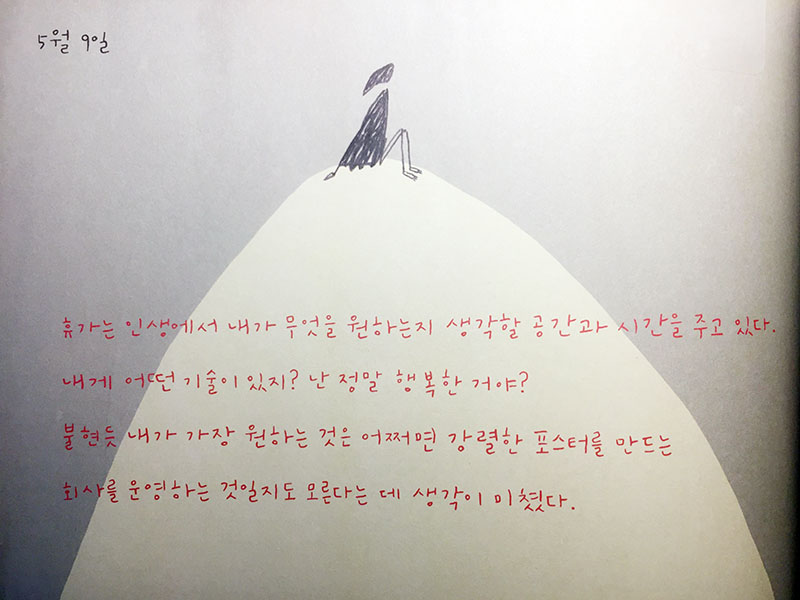 5월 9일
휴가는 인생에서 내가 무엇을 원하는지 생각할 공간과 시간을 주고 있다.
내게 어떤 기술이 있지? 난 정말 행복한 거야?
불현듯 내가 가장 원하는 것은 어쩌면 강렬한 포스터를 만드는
회사를 운영하는 것일지도 모른다는 데 생각이 미쳤다.